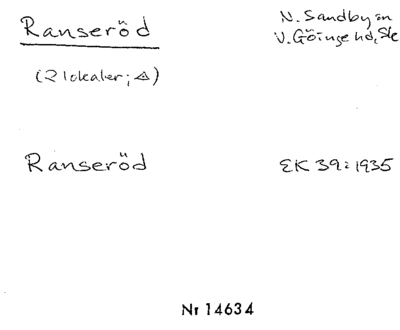 Ranseröd
N. Sandby sn
V. Göinge hd, Sk
(2 lokaler; ⚠)
Ranseröd
EK 39:1935
Nr 14634